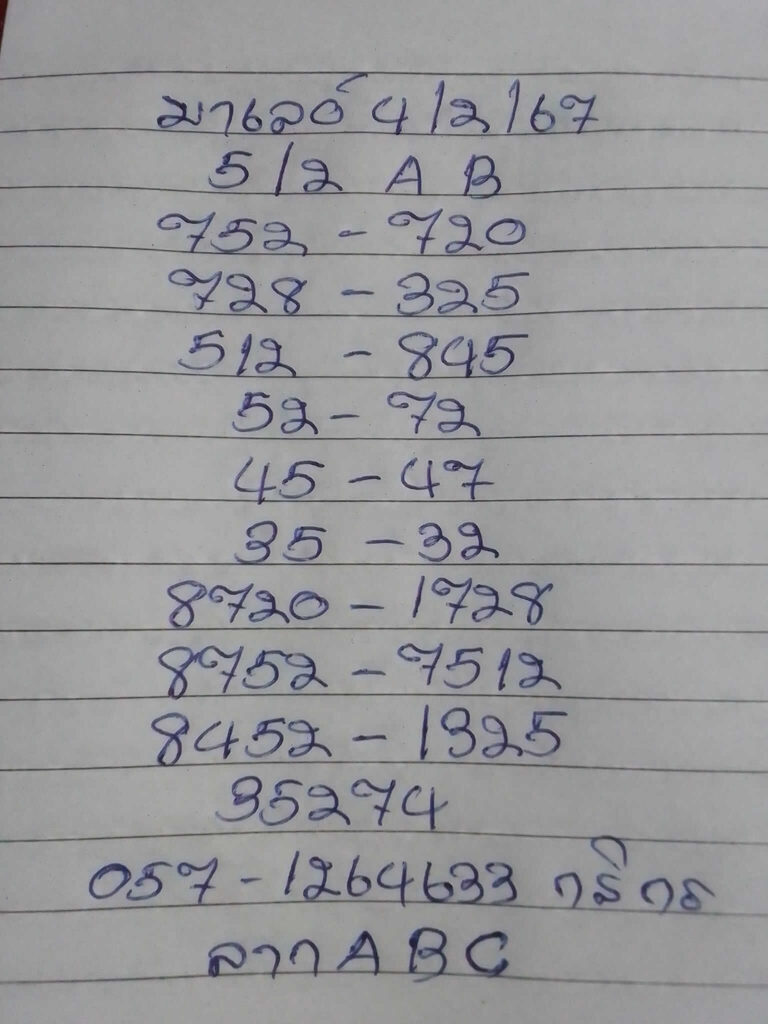 มาเลย์ 4/2/67
5/2 A B
752 - 720
728 - 325
512 - 845
52 - 72
45 - 47
35 - 32
8720 - 1728
8752 - 7512
8452 - 1325
35274
057 - 1264633
ลาก A B C